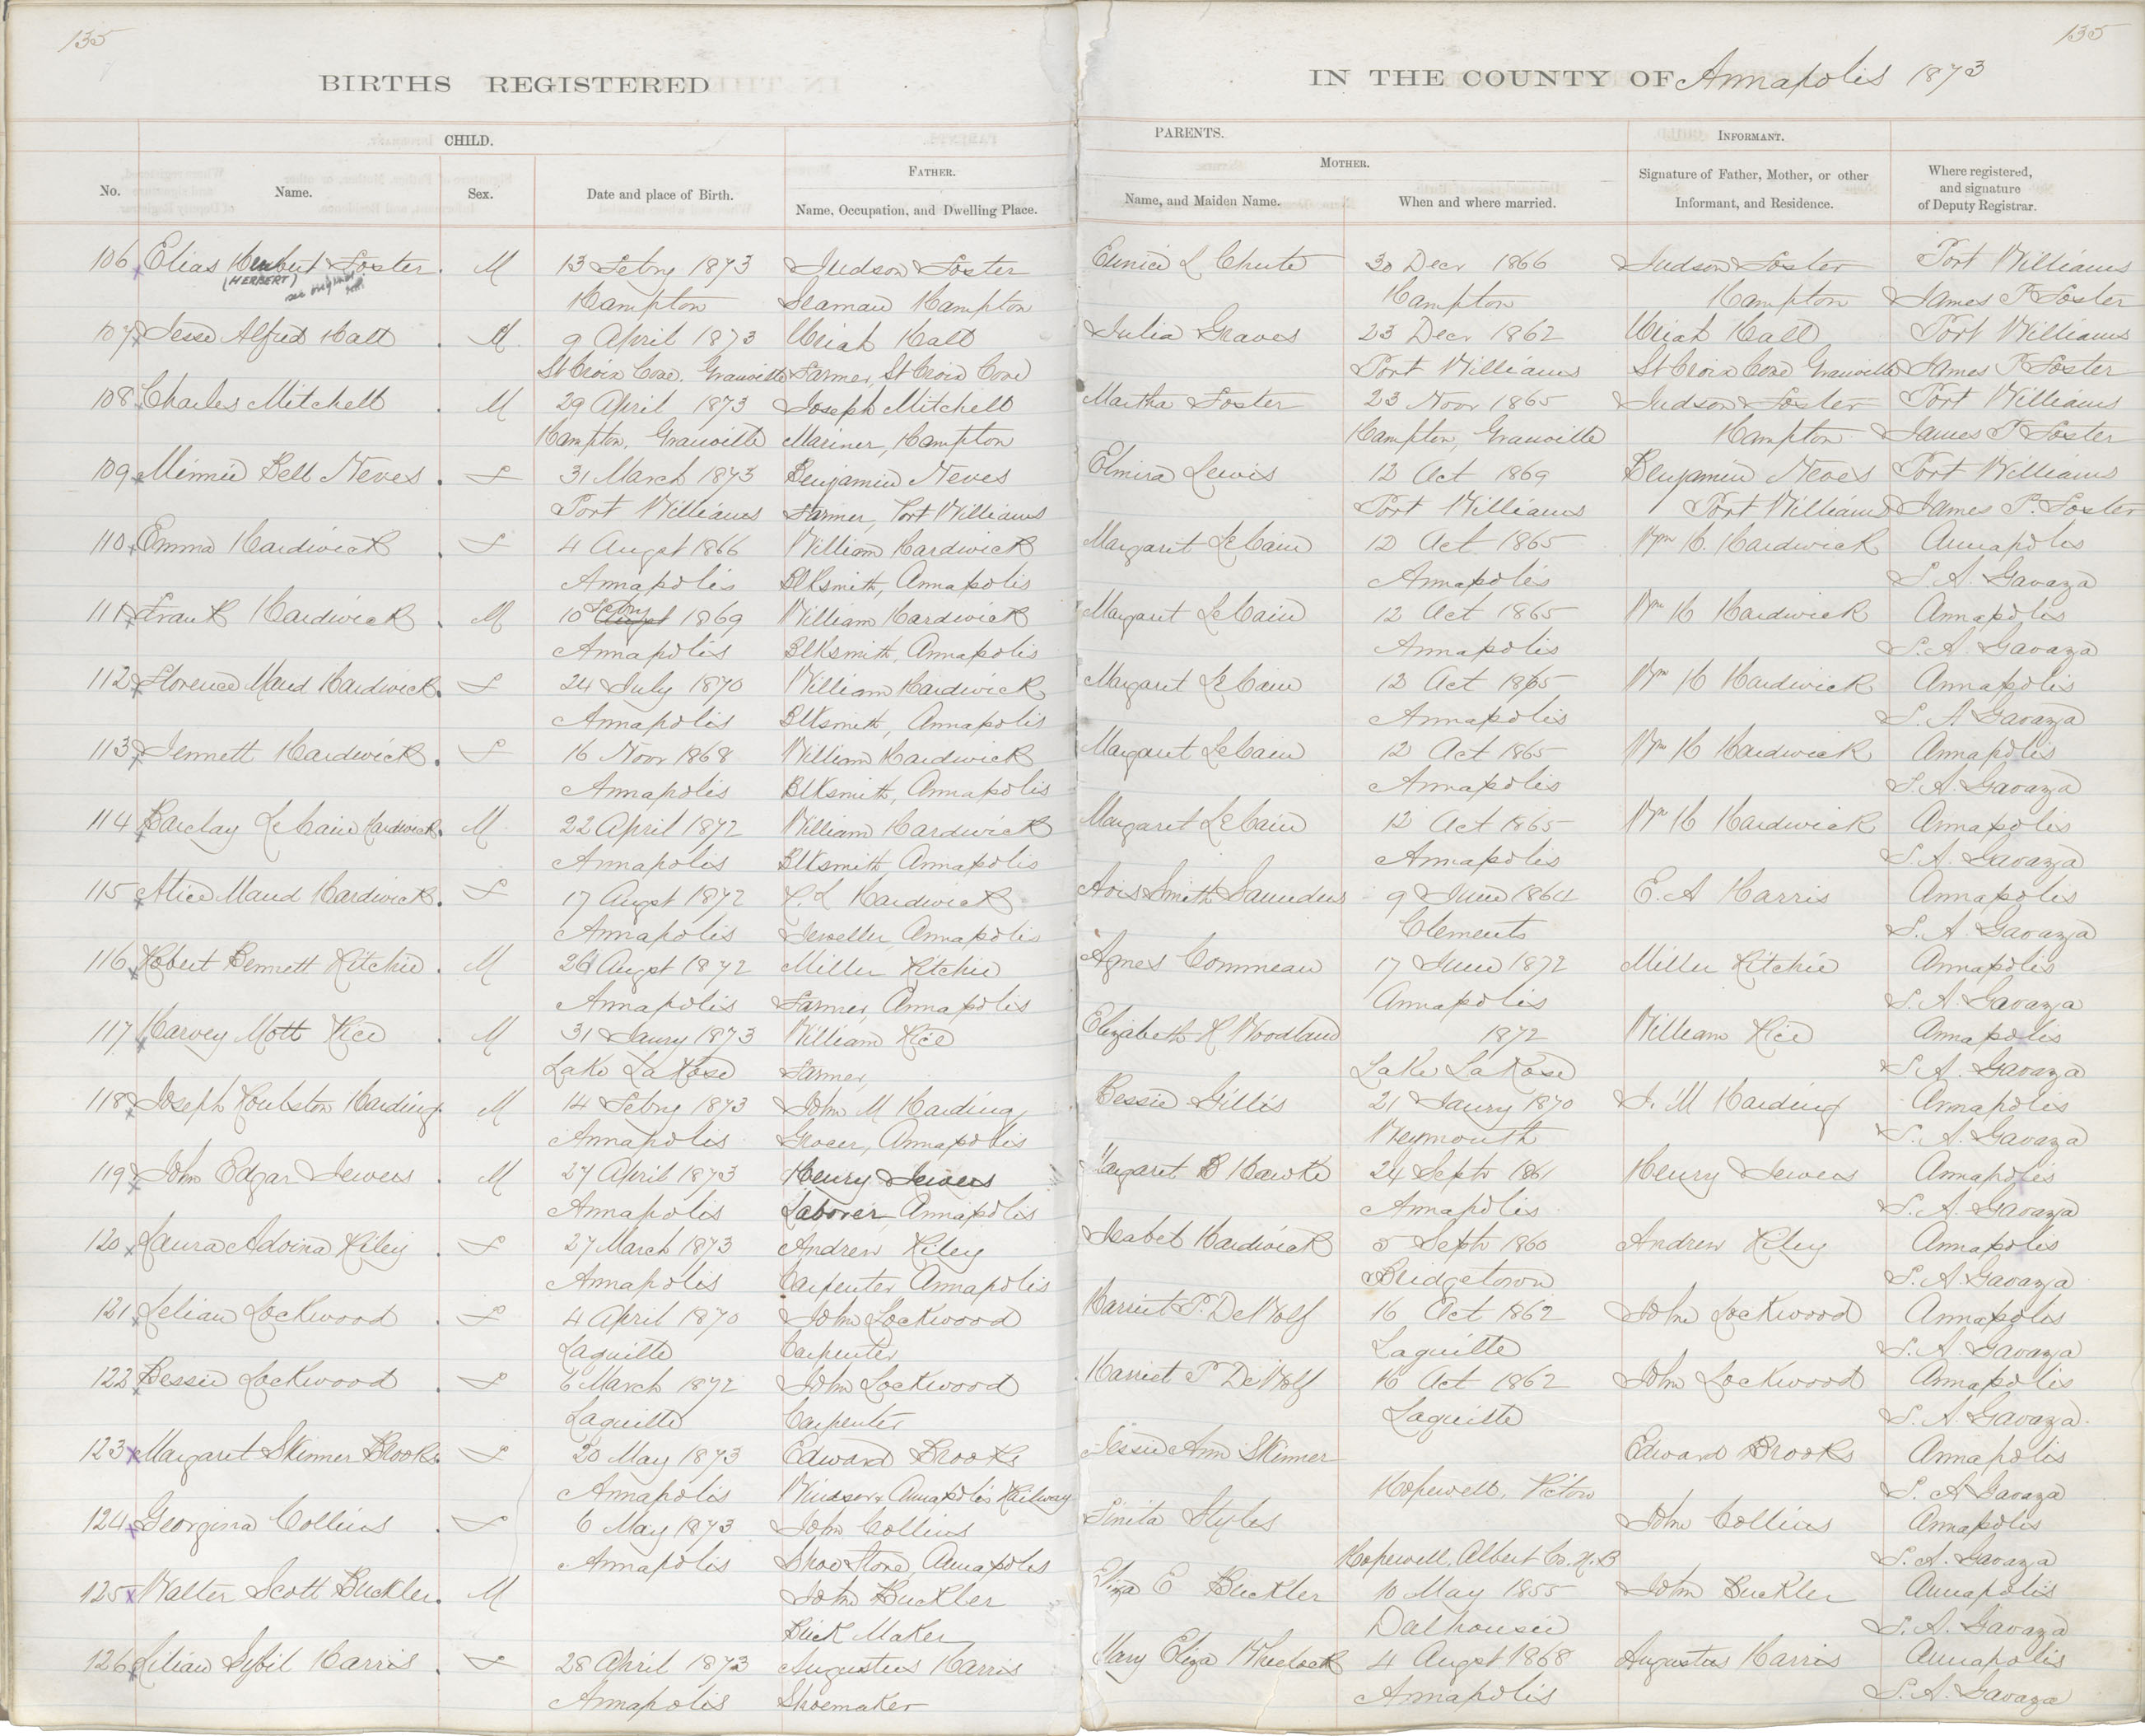 135
135
BIRTHS REGISTERED
IN THE COUNTY OF Annapolis 1873
CHILD.
PARENTS.
INFORMANT.
No.
Name.
Sex.
Date and place of Birth.
FATHER.
Name, Occupation, and Dwelling Place.
MOTHER.
Name, and Maiden Name.
When and where married.
Signature of Father, Mother, or other
Informant, and Residence.
Where registered,
and signature
of Deputy Registrar.
106 Elias Herbert Foster. M 13 Febry 1873 Judson Foster Eunice L Chute 30 Decr 1866 Judson Foster Port Williams
(HERBERT) see original
Hampton Seaman Hampton Hampton Hampton James P Foster
107 Jesse Alfred Hall . M 9 April 1873 Uriah Hall Julia Graves 23 Decr 1862 Uriah Hall Port Williams
St Croix Cove, Granville Farmer, St Croix Cove Port Williams St Croix Cove Granville James P Foster
108 Charles Mitchell . M 29 April 1873 Joseph Mitchell Martha Foster 23 Novr 1865 Judson Foster Port Williams
Hampton, Granville Mariner, Hampton Hampton, Granville Hampton James P Foster
109 Minnie Bell Neves . F 31 March 1873 Benjamin Neves Elmira Lewis 12 Oct 1869 Benjamin Neves Port Williams
Port Williams Farmer, Port Williams Port Williams Port Williams James P. Foster
110 Emma Hardwick . F 4 Augst 1866 William Hardwick Margaret LeCain 12 Oct 1865 Wm H. Hardwick Annapolis
Annapolis Blksmith, Annapolis Annapolis S. A. Gavaza
111 Frank Hardwick . M 10 Febry 1869 William Hardwick Margaret LeCain 12 Oct 1865 Wm H Hardwick Annapolis
Annapolis Blksmith, Annapolis Annapolis S. A. Gavaza
112 Florence Maud Hardwick. F 24 July 1870 William Hardwick Margaret LeCain 12 Oct 1865 Wm H Hardwick Annapolis
Annapolis Blksmith, Annapolis Annapolis S. A. Gavaza
113 Jennett Hardwick . F 16 Novr 1868 William Hardwick Margaret LeCain 12 Oct 1865 Wm H Hardwick Annapolis
Annapolis Blksmith, Annapolis Annapolis S. A. Gavaza
114 Barclay LeCain Hardwick. M 22 April 1872 William Hardwick Margaret LeCain 12 Oct 1865 Wm H Hardwick Annapolis
Annapolis Blksmith, Annapolis Annapolis S. A. Gavaza
115 Alice Maud Hardwick. F 17 Augst 1872 L Hardwick Smith Saunders 9 June 1864 E. A Harris Annapolis
Annapolis Jeweller, Annapolis Clements S. A. Gavaza
116 Robert Bennett Ritchie . M 26 Augst 1872 Miller Ritchie Agnes Commeau 17 June 1872 Miller Ritchie Annapolis
Annapolis Farmer, Annapolis Annapolis S. A. Gavaza
117 Harvey Mott Rice . M 31 Janry 1873 William Rice Elizabeth R Woodland 1872 William Rice Annapolis
Lake LaRose Farmer, Lake LaRose S. A. Gavaza
118 Joseph Roulston Harding. M 14 Febry 1873 John M Harding, Bessie Gillis 21 Janry 1870 J. M Harding Annapolis
Annapolis Grocer, Annapolis Weymouth S. A. Gavaza
119 John Edgar Jewers . M 27 April 1873 Henry Jewers Margaret B Hawke 24 Septr 1861 Henry Jewers Annapolis
Annapolis Laborer, Annapolis Annapolis S. A. Gavaza
120 Laura Advina Riley . F 27 March 1873 Andrew Riley Isabel Hardwick 5 Septr 1860 Andrew Riley Annapolis
Annapolis Carpenter Annapolis Bridgetown S. A. Gavaza
121 Lelian Lockwood . F 4 April 1870 John Lockwood Harriet P. DeWolf 16 Oct 1862 John Lockwood Annapolis
Laquille Carpenter Laquille S. A. Gavaza
122 Bessie Lockwood . F 6 March 1872 John Lockwood Harriet P DeWolf 16 Oct 1862 John Lockwood Annapolis
Laquille Carpenter Laquille S. A. Gavaza.
123 Margaret Skinner Brooks. F 20 May 1873 Edward Brooks Jessie Ann Skinner Edward Brooks Annapolis
Annapolis Windsor & Annapolis Railway Hopewell, Pictou S. A Gavaza
124 Georgina Collins . F 6 May 1873 John Collins Styles John Collins Annapolis
Annapolis Shoe Store, Annapolis Hopewell, Albert Co. N. B S. A. Gavaza
125 Walter Scott Buckler. M John Buckler Eliza E Buckler 10 May 1855 John Buckler Annapolis
Brick Maker Dalhousie S. A. Gavaza
126 Lilian Sybil Harris . F 28 April 1873 Augustus Harris Mary Eliza Wheelock 4 Augst 1868 Augustus Harris Annapolis
Annapolis Shoemaker Annapolis S. A. Gavaza